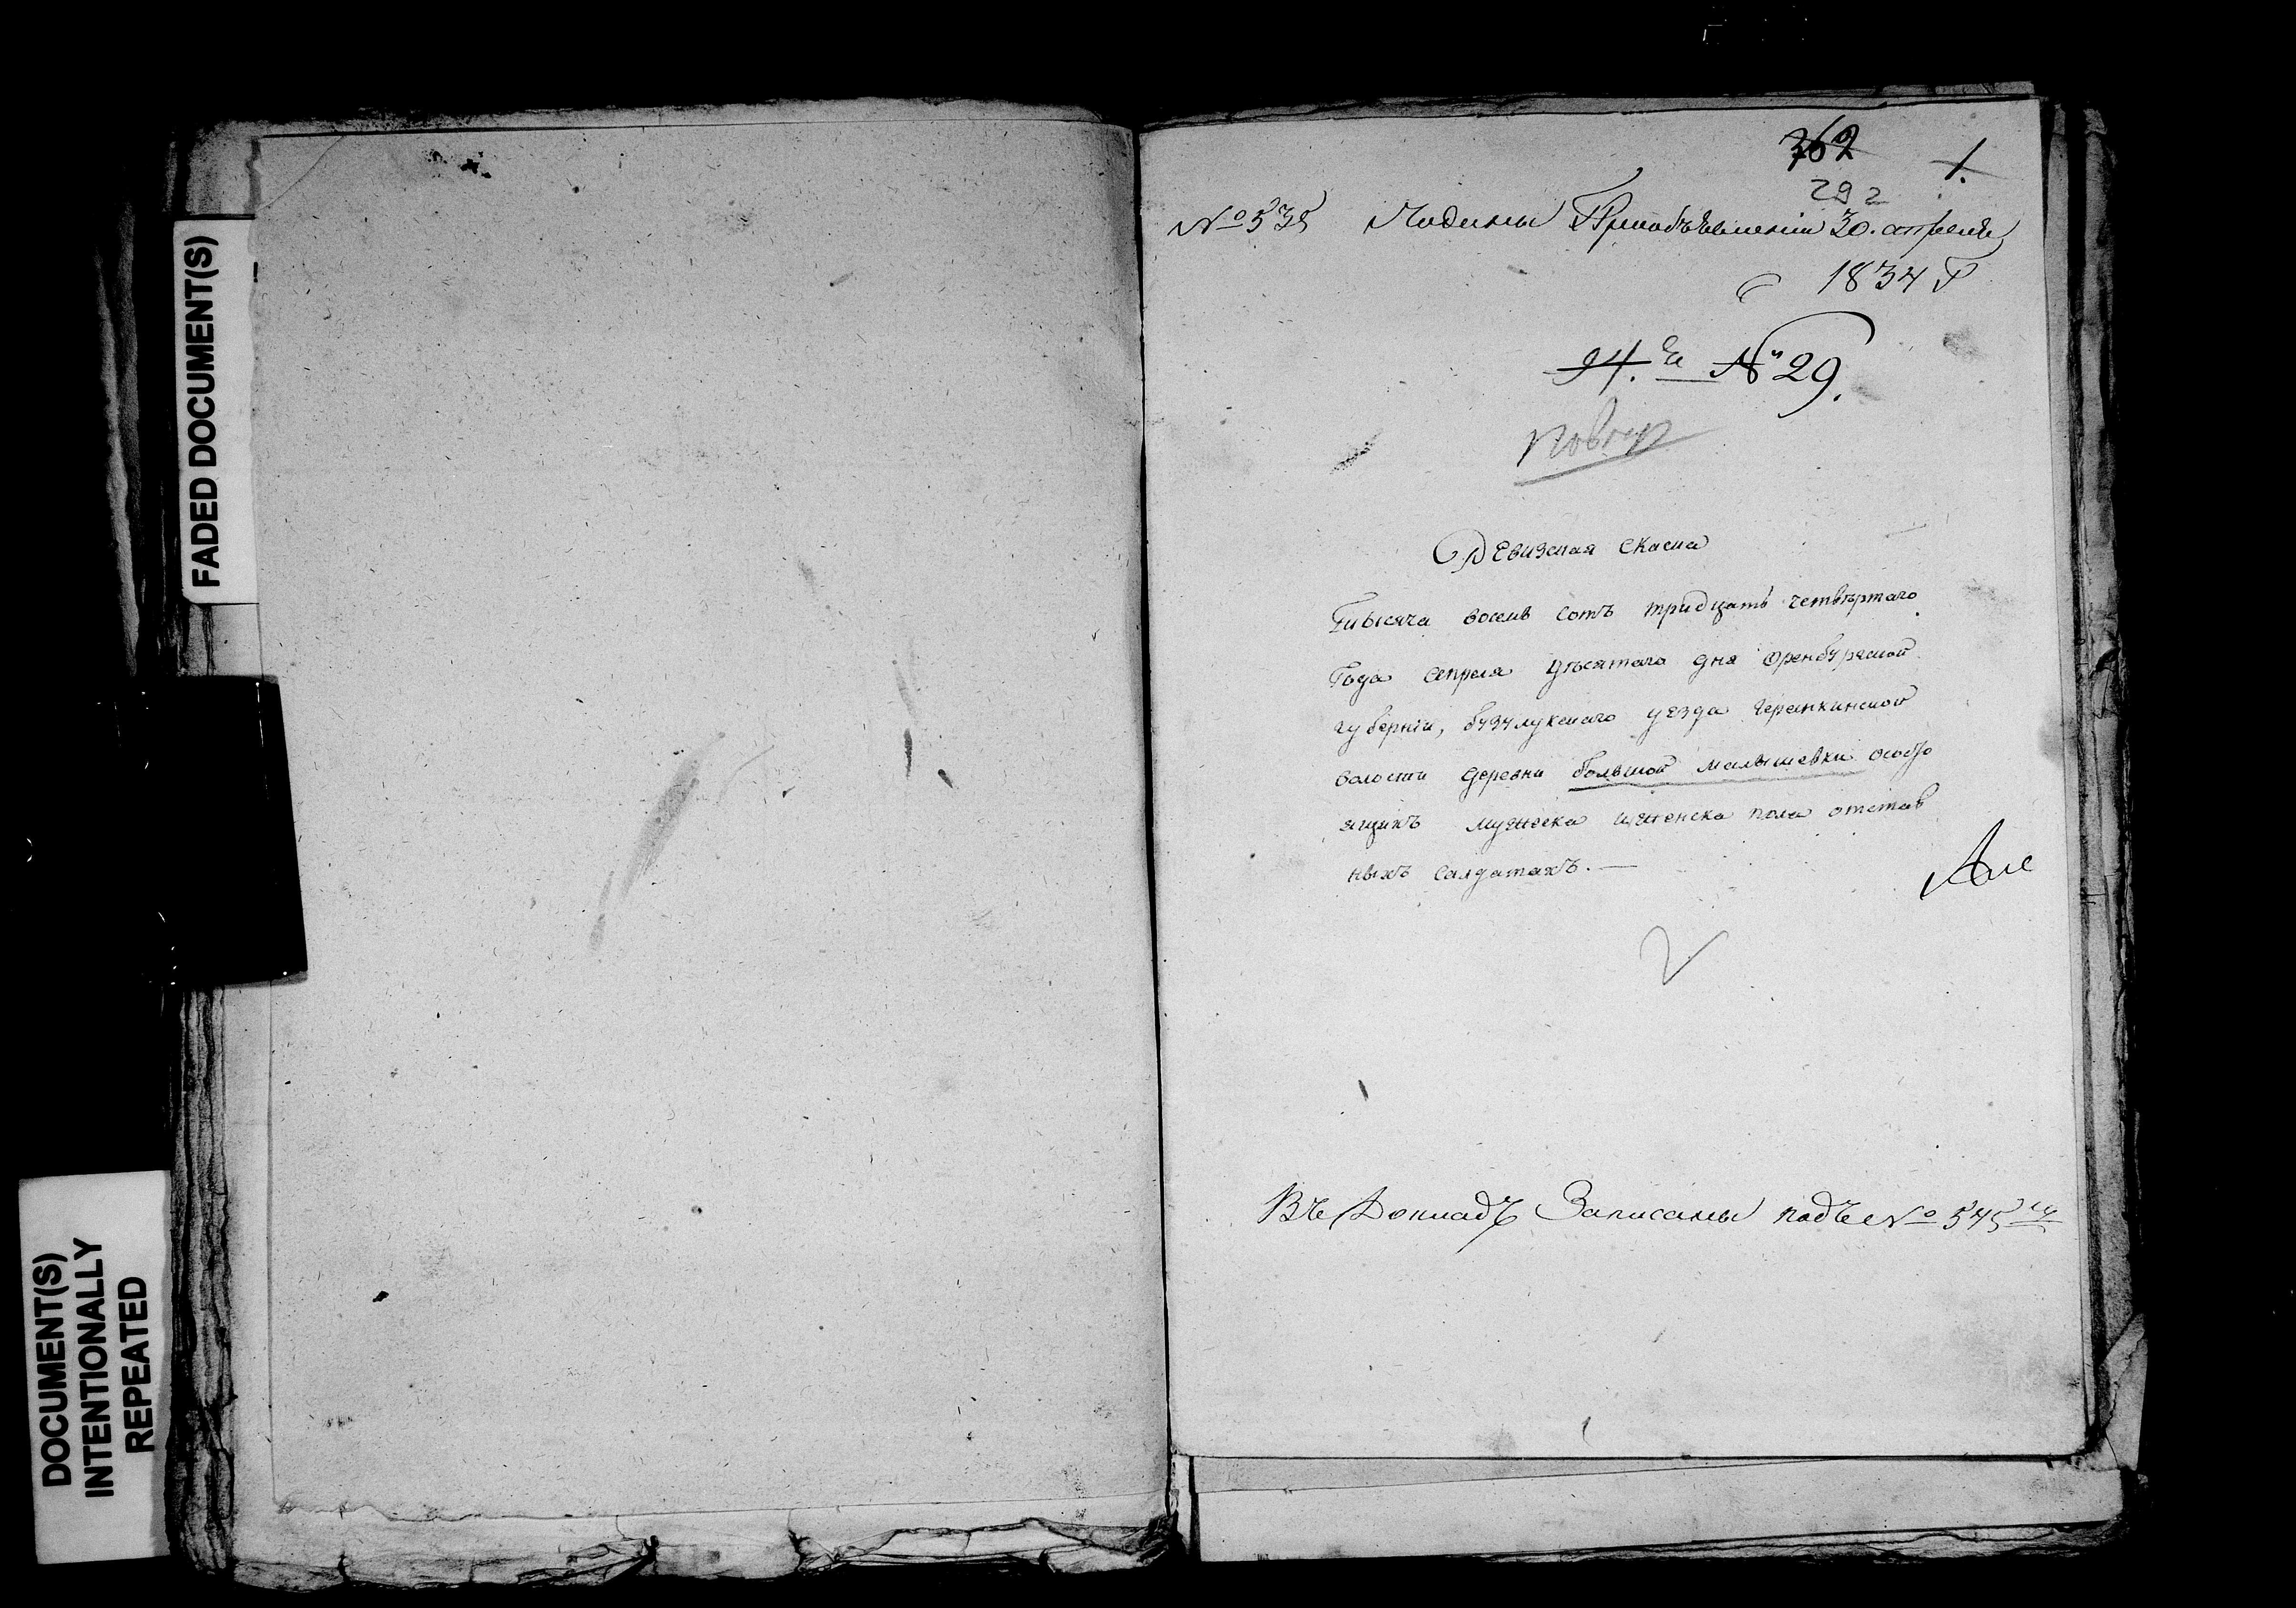 FADED DOCUMENT(S)
DOCUMENT(S)
INTENTIONALLY
REPEATED
362
1.
292
№ 535 Поданы При объявлении 30. апреля
1834 г
94. № 29.
повтор
Ревизская скаска
Тысяча восемь сотъ тридцать четвертаго
года апреля дня Оренбургской
губерніи, бузулукскаго уезда Геранкинской
волости деревни большой малышевки о состо
ящихъ мужеска и женска пола отстав
ныхъ салдатахъ. —
Въ Докладъ Записаны подъ № 545